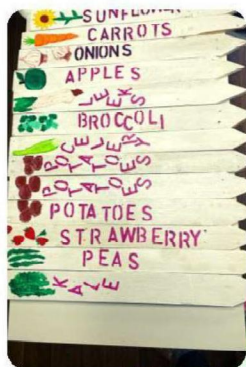 SUNFLOWER
CARROTS
ONIONS
APPLES
LEEKS
BROCCOLI
CELERY
POTATOES
POTATOES
POTATOES
STRAWBERRY
PEAS
KALE